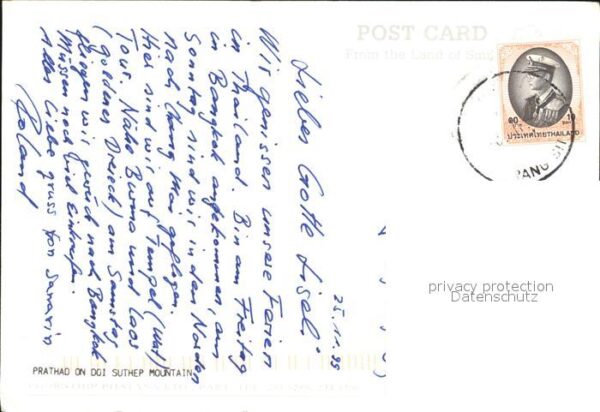 POST CARD
From the Land of Smi
25.11.95
Liebes Gotte Lisel.
Wir genissen unsere Ferien
in Thailand. Bin am Freitag
in Bangkok angekommen, am
Sonntag sind wir in den Norden
nach Chang Mai geflogen.
Hier sind wir auf Tempel (Wat)
Tour. Nähe Burma und Laos
(goldenes Dreieck) am Samstag
fliegen wir zurück nach Bangkok
Müssen noch Gind Eintreffen.
Alles Liebe gruss von
Roland
10 10
ประเทศไทย THAILAND
privacy protection
Datenschutz
PRATHAD ON DOI SUTHEP MOUNTAIN.